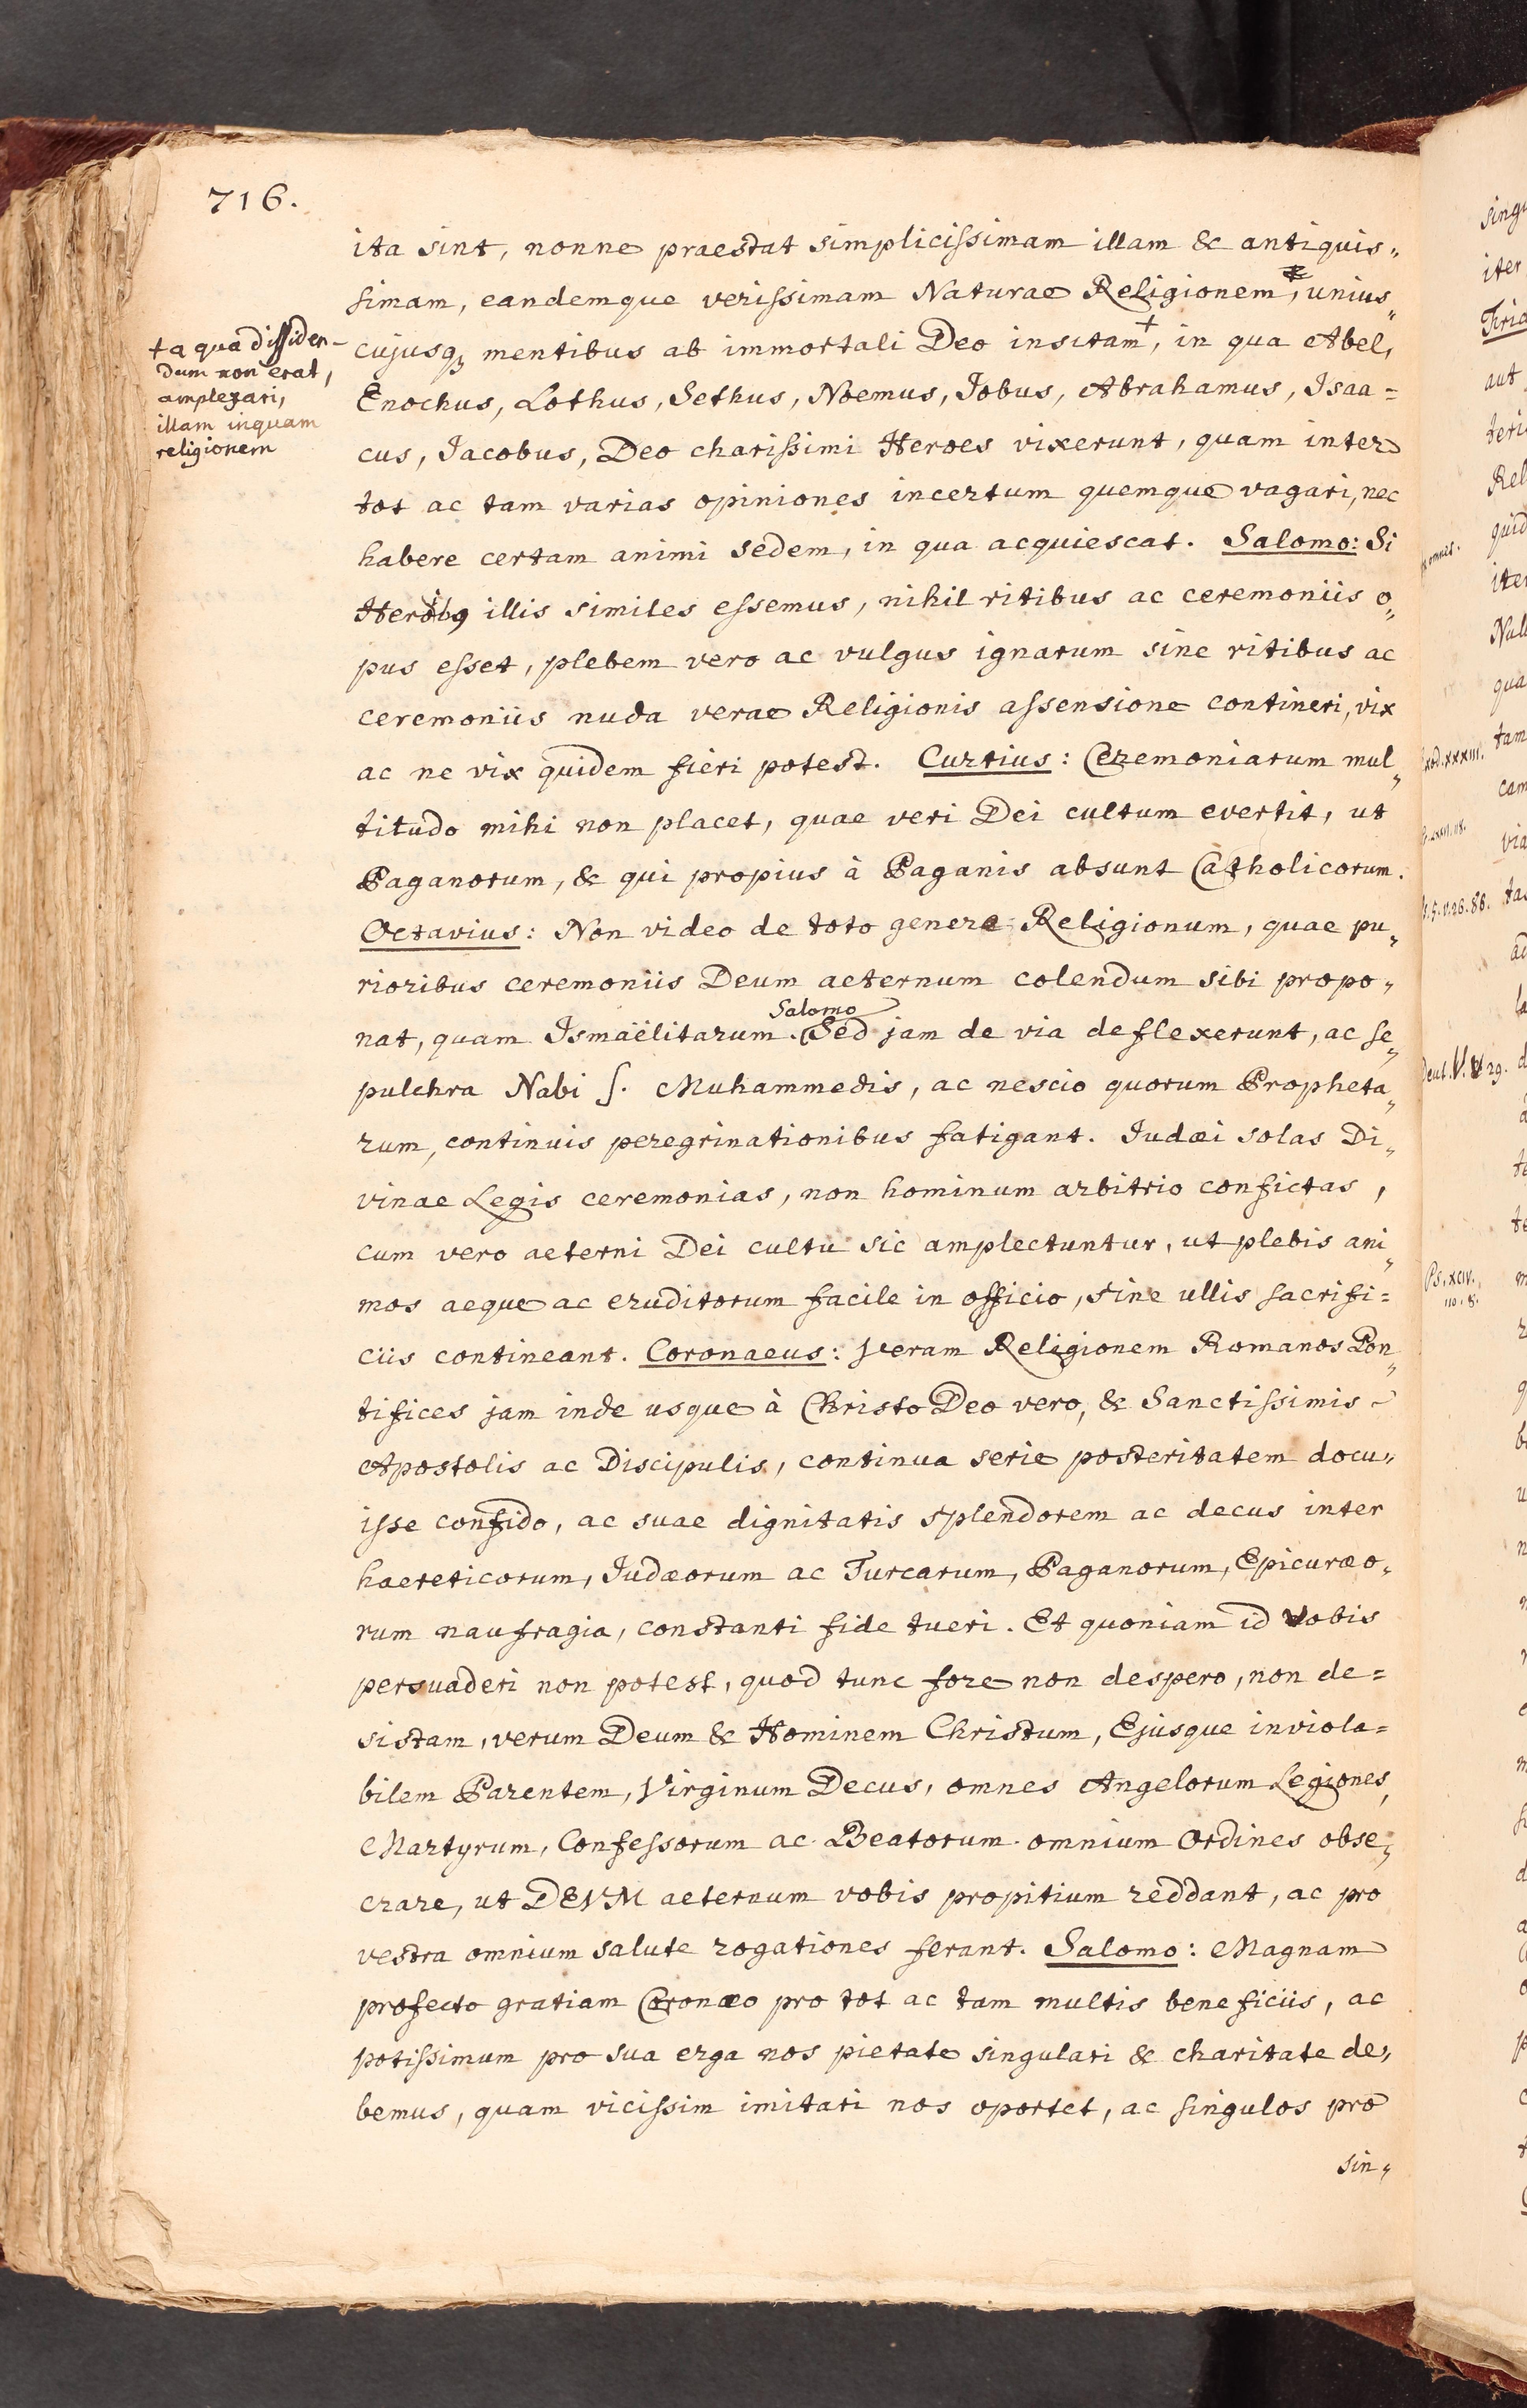 716.
ita sint, nonne praestat simplicissimam illam & antiquis„
simam, eandemque verissimam Naturae Religionem, unius„
cujusq; mentibus ab immortali Deo insitam+, in qua Abel,
+a qua dissiden-
dum non erat,
amplexari,
illam inquam
religionem
Enochus, Lothus, Sethus, Noemus, Jobus, Abrahamus, Isaa=
cus, Jacobus, Deo charissimi Heroes vixerunt, quam inter
tot ac tam varias opiniones incertum quemque vagari, nec
habere certam animi sedem, in qua acquiescat. Salomo: Si
Heroibq illis similes essemus, nihil ritibus ac ceremoniis o„
pus esset, plebem vero ac vulgus ignarum sine ritibus ac
ceremoniis nuda verae Religionis assensione contineri, vix
ac ne vix quidem fieri potest. Curtius: Ceremoniarum mul„
titudo mihi non placet, quae veri Dei cultum evertit, ut
Paganorum, & qui propius à Paganis absunt Catholicorum.
Octavius: Non video de toto genere Religionum, quae pu„
rioribus ceremoniis Deum aeternum colendum sibi propo„
nat, quam Ismaëlitarum. Salomo Sed jam de via deflexerunt, ac se„
pulchra Nabi s. Muhammedis, ac nescio quorum Propheta„
rum, continuis peregrinationibus fatigant. Judæi solas Di„
vinae Legis ceremonias, non hominum arbitrio confictas,
cum vero aeterni Dei cultu sic amplectuntur, ut plebis ani„
mos aeque ac eruditorum facile in officio, sine ullis sacrifi=
ciis contineant. Coronaeus: Veram Religionem Romanos Pon„
tifices jam inde usque à Christo Deo vero, & Sanctissimis
Apostolis ac Discipulis, continua serie posteritatem docu„
isse confido, ac suae dignitatis splendorem ac decus inter
haereticorum, Judæorum ac Turcarum, Paganorum, Epicuræo„
rum naufragia, constanti fide tueri. Et quoniam id vobis
persuaderi non potest, quod tunc fore non despero, non de=
sistam, verum Deum & Hominem Christum, Ejusque inviola=
bilem Parentem, Virginum Decus, omnes Angelorum Legiones,
Martyrum, Confessorum ac Beatorum omnium Ordines obse„
crare, ut DEVM aeternum vobis propitium reddant, ac pro
vestra omnium salute rogationes ferant. Salomo: Magnam
profecto gratiam Coronæo pro tot ac tam multis beneficiis, ac
potissimum pro sua erga nos pietate singulari & charitate de„
bemus, quam vicissim imitari nos oportet, ac singulos pro
sin„